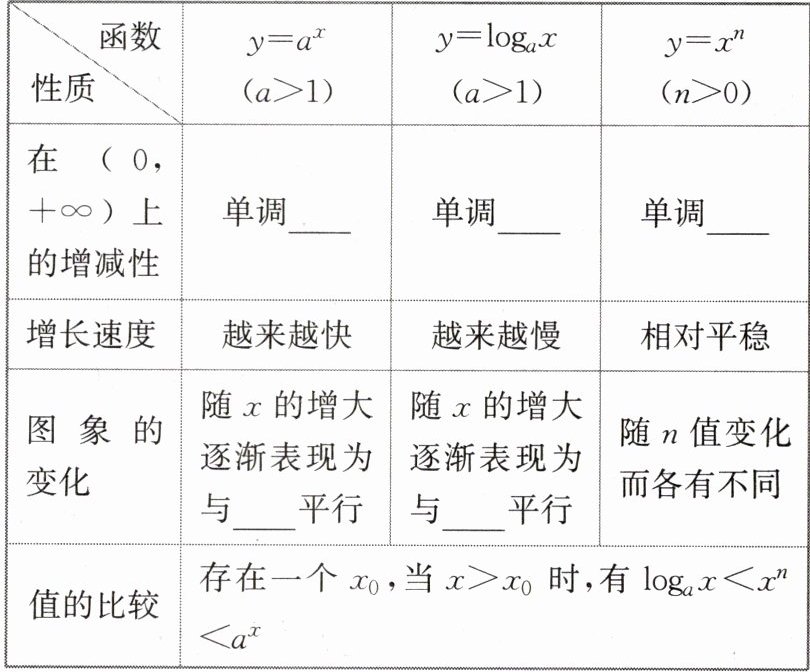 函数 y=aˣ y=logₐx y=xⁿ
性质 (a>1) (a>1) (n>0)
在 (0,
+∞)上 单调____ 单调____ 单调____
的增减性
增长速度 越来越快 越来越慢 相对平稳
随 x 的增大 随 x 的增大
图象的 随 n 值变化
逐渐表现为 逐渐表现为
变化 而各有不同
与____平行 与____平行
存在一个 x₀,当 x>x₀ 时,有 logₐx<xⁿ
值的比较
<aˣ